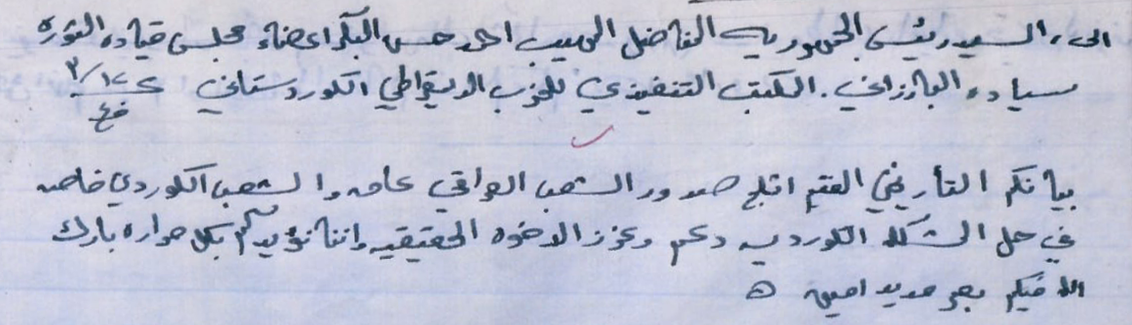 الى، السيد رئيس الجمهوريه الفاضل المهيب احمد حسن البكر اعضاء مجلس قياده الثوره
سياده البارزاني. المكتب التنفيذي للحزب الديمقراطي الكوردستاني
بيانكم التأريخي القيم اثلج صدور الشعب العراقي عامه والشعب الكوردي خاصه
في حل المشكله الكورديه دعم وعزز الاخوه الحقيقيه واننا نؤيدكم بكل حراره بارك
الله فيكم بعمر مديد امين